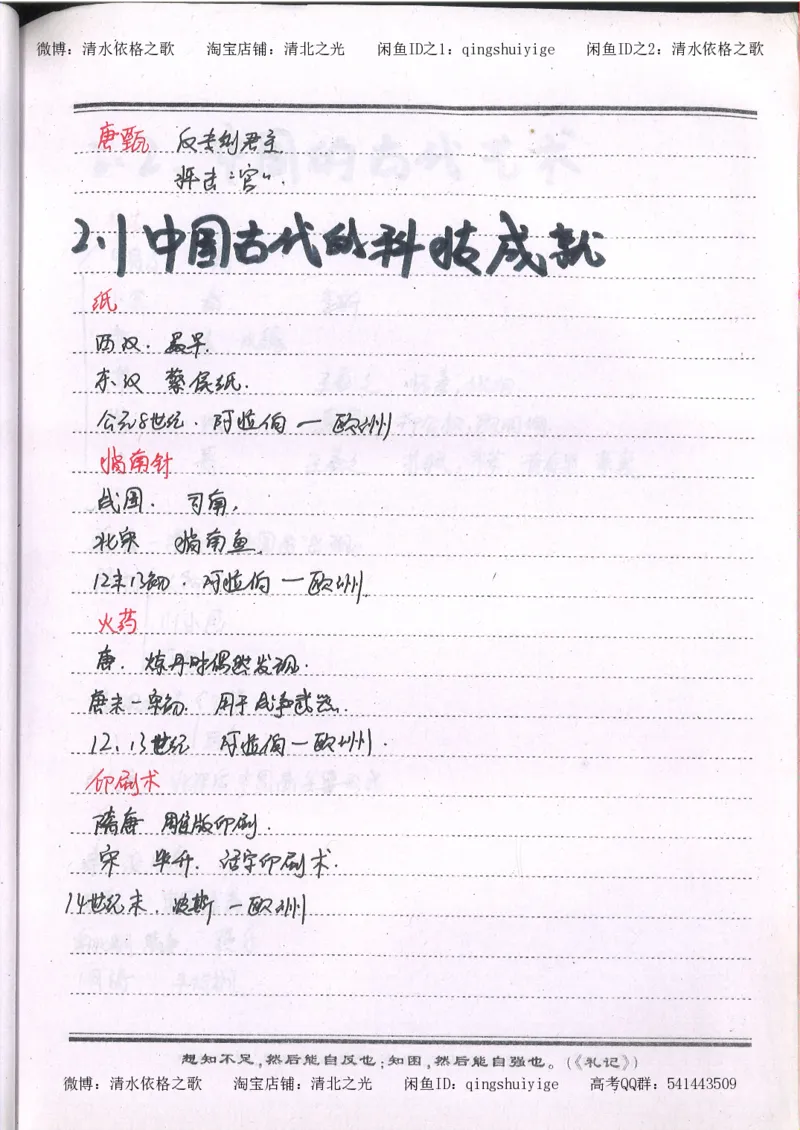 微博：清水依格之歌 淘宝店铺：清北之光 闲鱼ID之1：qingshuiyige 闲鱼ID之2：清水依格之歌
唐甄 反专制君主
抨击“宫”.
2.1 中国古代的科技成就
纸
西汉. 最早.
东汉 蔡侯纸.
公元8世纪. 阿拉伯—欧洲
指南针
战国. 司南.
北宋 指南鱼.
12末13初. 阿拉伯—欧洲.
火药
唐. 炼丹时偶然发现.
唐末-宋初. 用于战争武器.
12、13世纪 阿拉伯—欧洲.
印刷术
隋唐 雕版印刷.
宋 毕升. 活字印刷术.
14世纪末. 波斯—欧洲
想知不足,然后能自反也;知困,然后能自强也。(《礼记》)
微博：清水依格之歌 淘宝店铺：清北之光 闲鱼ID：qingshuiyige 高考QQ群：541443509